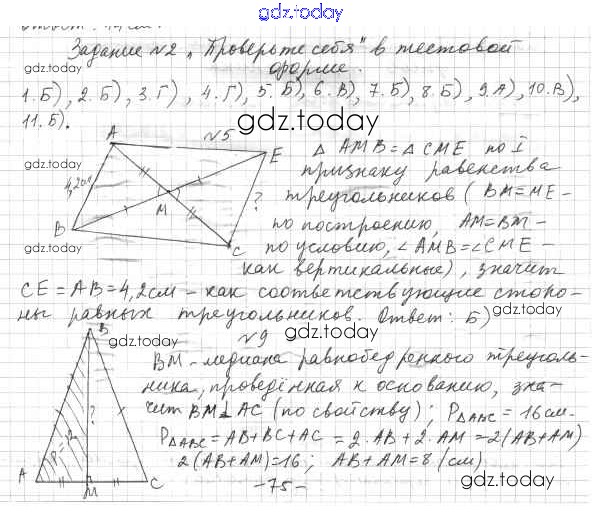 gdz.today
Задание №2 „Проверьте себя" в тестовой
форме.
gdz.today
1.Б), 2.Б), 3.Г), 4.Г), 5.Б), 6.В), 7.Б), 8.Б), 9.А), 10.В),
11.Б).
gdz.today
№5
A
E
4,2см
?
M
B
C
gdz.today
gdz.today
△ AMB = △ CME по I
признаку равенства
треугольников (BM=ME-
по построению, AM=BM-
по условию, ∠AMB=∠CME-
как вертикальные), значит
gdz.today
gdz.today
CE = AB = 4,2см - как соответствующие сторо-
ны равных треугольников. Ответ: Б)
gdz.today
gdz.today
№9
B
?
P=12
A
M
C
BM - медиана равнобедренного треуголь-
ника, проведённая к основанию, зна-
чит BM⊥AC (по свойству); P△ABC = 16см.
P△ABC = AB+BC+AC = 2·AB+2·AM = 2(AB+AM)
2(AB+AM)=16; AB+AM=8 (см)
gdz.today
-75-
gdz.today